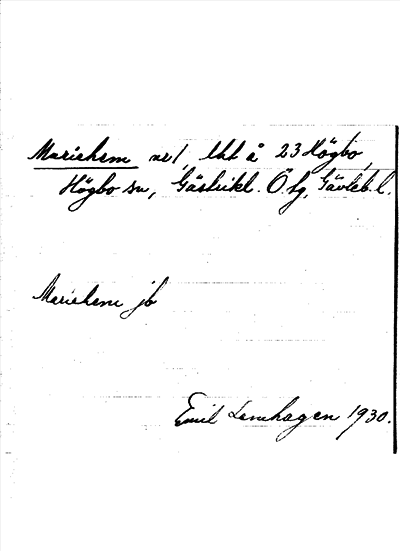 Mariehem nr 1, lht å 23 Högbo,
Högbo sn, Gästrikl. Ö. hg, Gävleb. l.
Mariehem jb
Emil Lenhagen 1930.